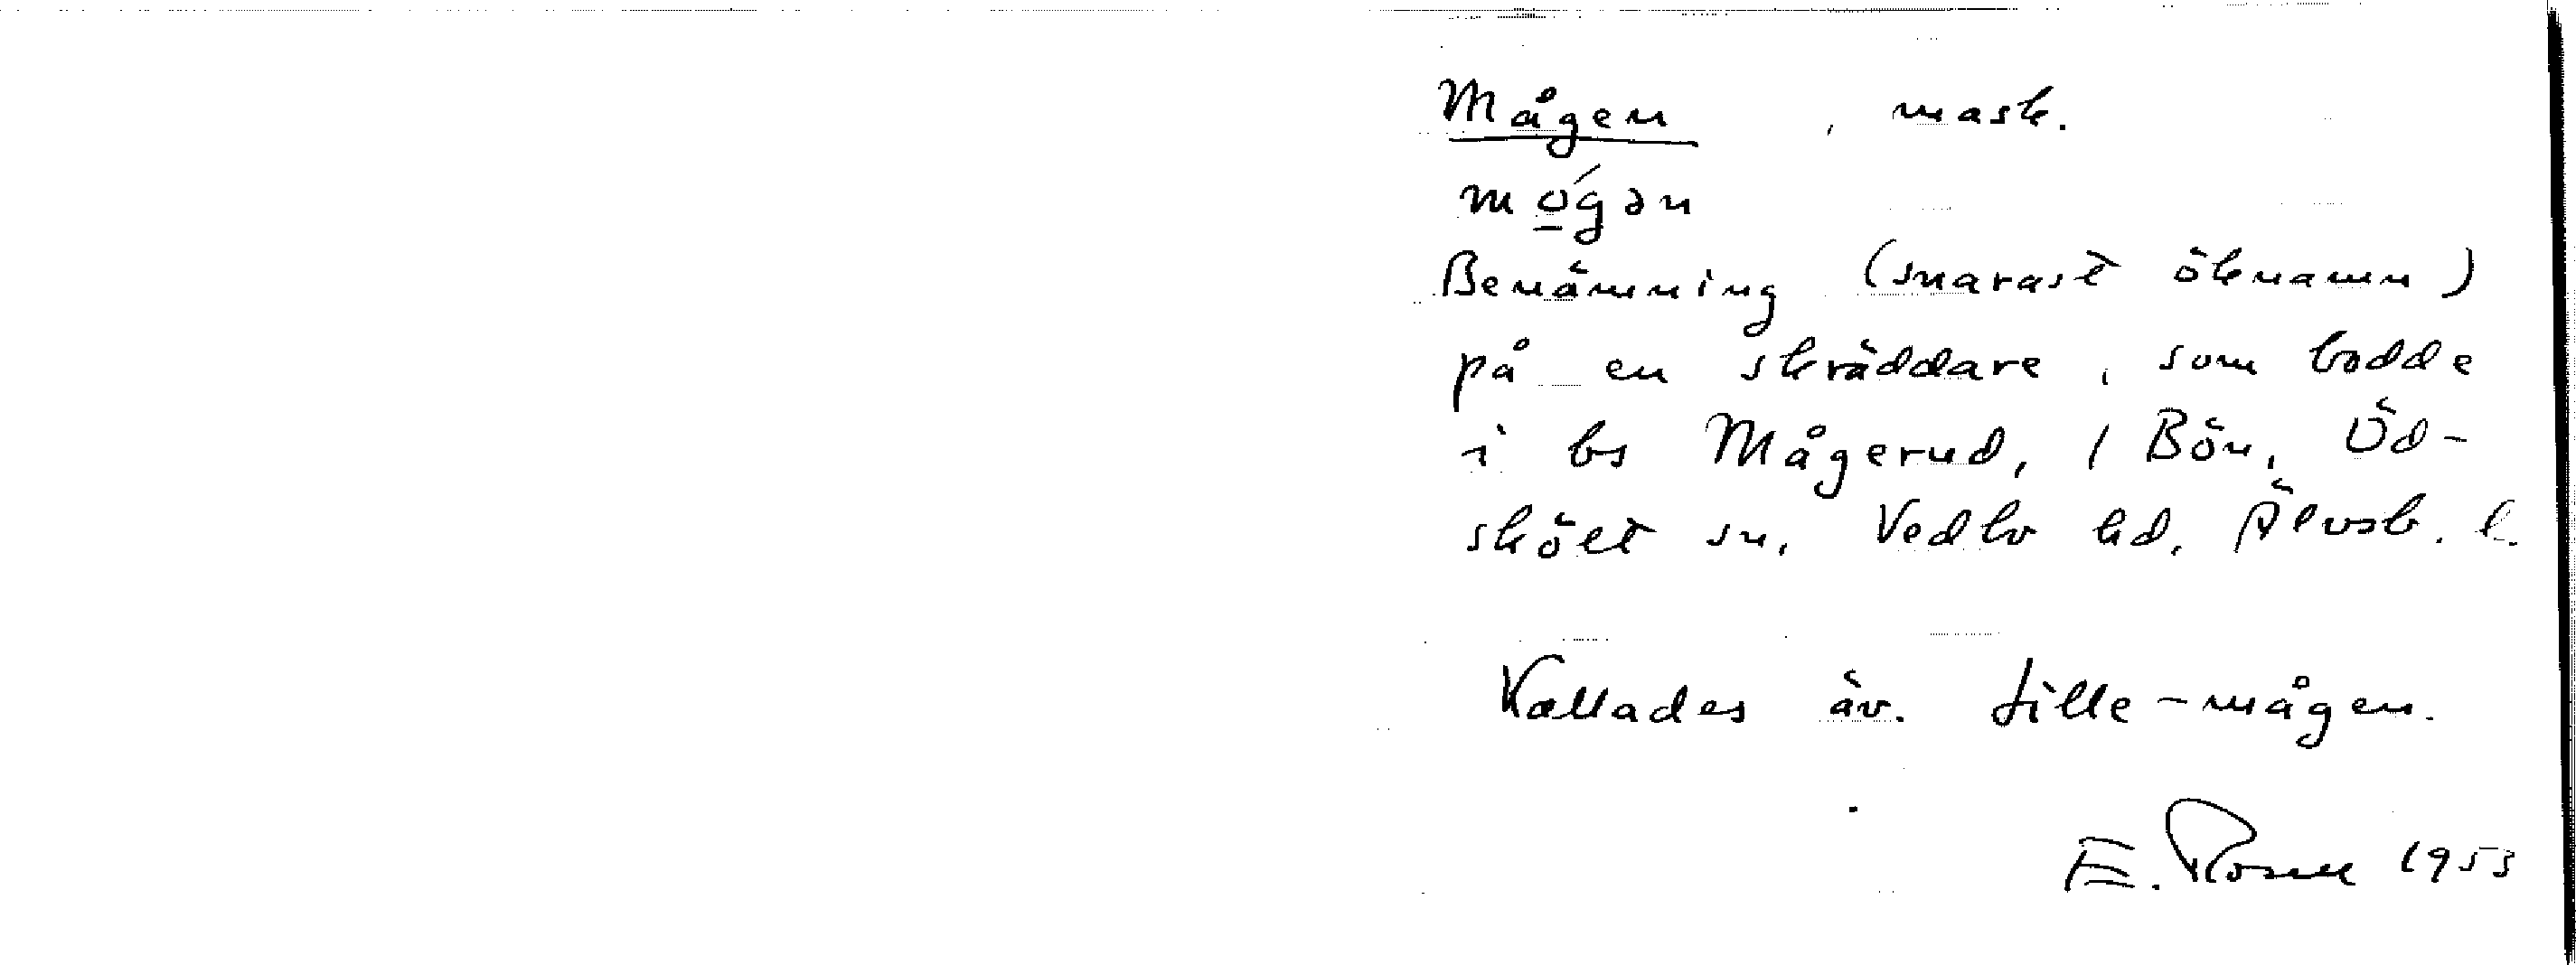 Mågen, mask.
mo̲´gən
Benämning (snarast öknamn)
på en skräddare, som bodde
i bs Mågerud, 1 Bön, Öd-
skölt sn, Vedbo hd, Älvsb. l.
Kallades äv. lille-mågen.
E. Rosell 1953